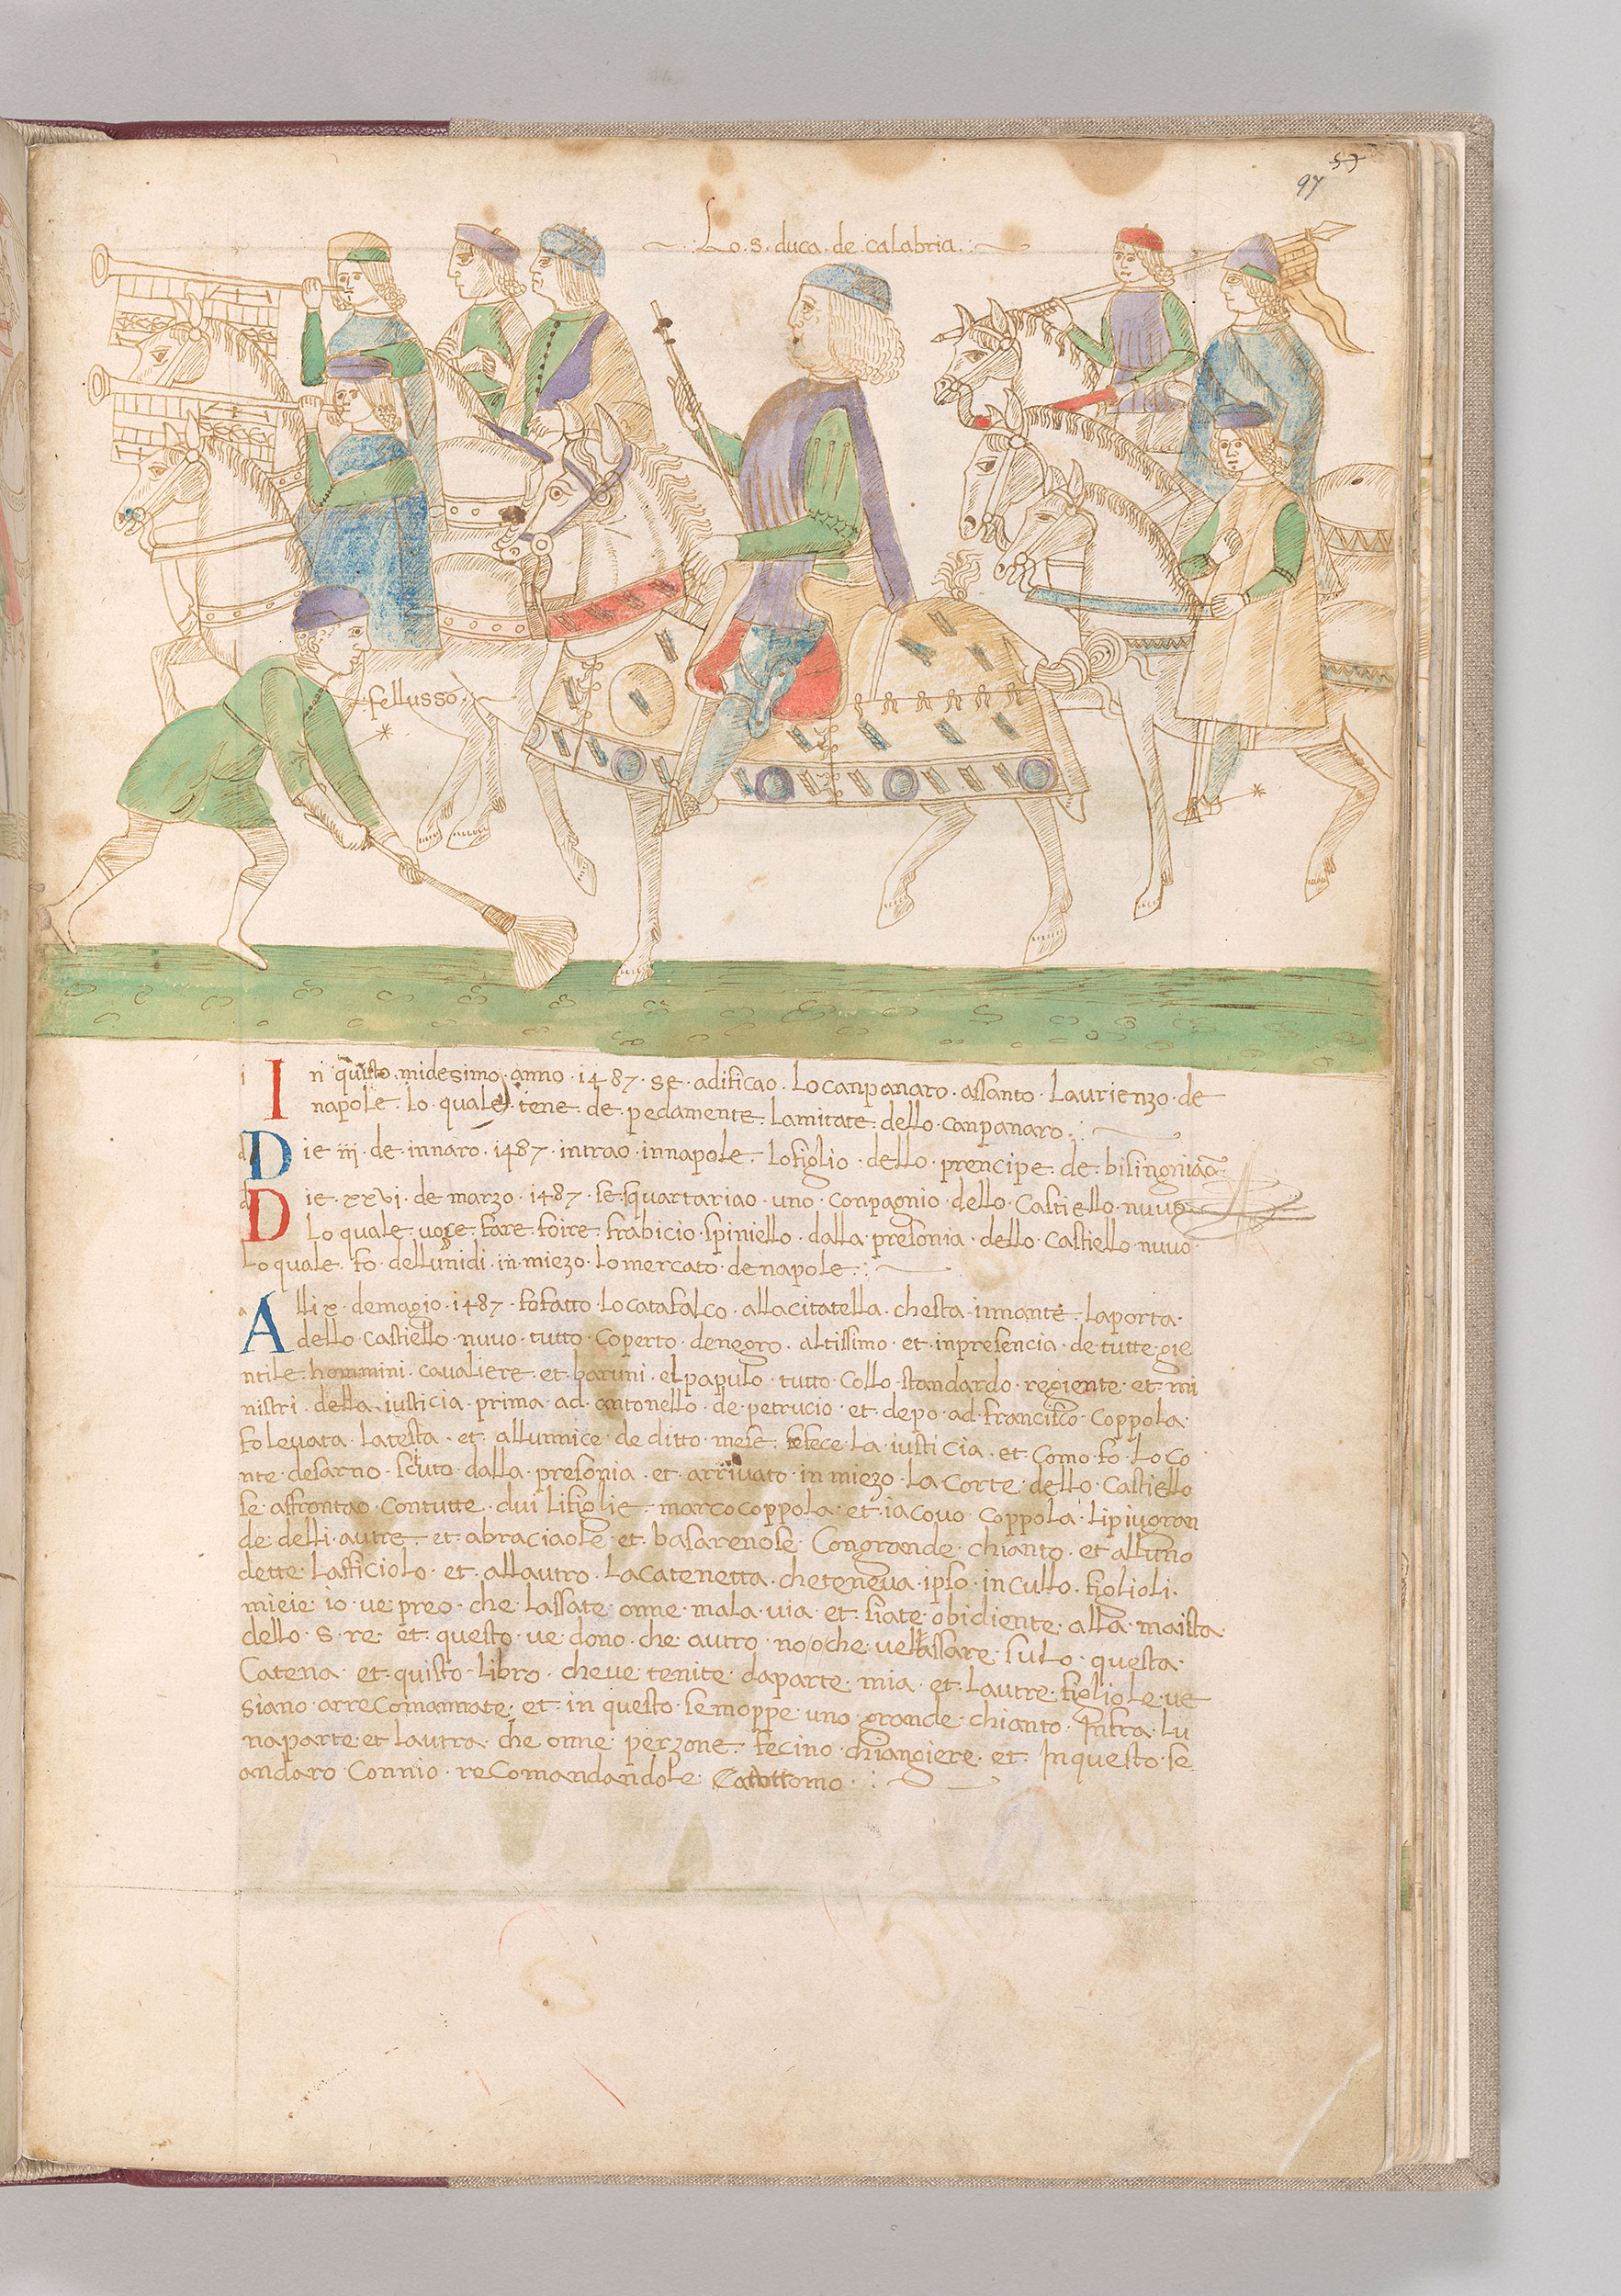 57
97
Lo. s. duca. de calabria.
fellusso.
In quisto midesimo anno 1487 se adificao. Lo canpanaro. assanto Laurienzo de
napole. lo quale tene de pedamente. Lamitate dello canpanaro.
Die iii de innaro. 1487 intrao innapole. Lo figlio dello prencipe de bisingniao
Die xxvi de marzo. 1487 se squartariao uno conpagnio dello Castiello nuvo
Lo quale fare foire frabicio spiniello. dalla presonia dello castiello nuvo
Lo quale. fo dellunidi in miezo lo mercato de napole.
Alli x demagio 1487 fo fatto lo catafalco. alla citatella. chesta innante laporta
dello castiello nuvo tutto coperto denegro. altissimo et inpresencia de tutte gie
ntile hommini. cavaliere et baruni. el papulo tutto collo standardo regiente et mi
nistri della iusticia prima ad antonello de petrucio et depo ad francisco coppola
fo levata latesta. et allunnice de ditto mese se fece la iusticia. et como fo lo co
nte desarno scuto dalla presonia et arrivato in miezo la corte dello Castiello
se affrontao contutte dui li figlie marco coppola et iacovo coppola li piu gran
de delli autre et abraciaole et basarenose Con grande chianto. et alluno
dette. Lafficiolo et allautro. La catenetta. che teneva ipso in cullo. figlioli.
mieie io ve preo che lassate onne mala via et siate obidiente alla maista
dello s. re et questo ve dono che autro no che vellassare sulo questa
Catena et quisto libro. cheve tenite daparte mia et Lautre figliole ve
siano arrecomannate et in questo se moppe uno grande chianto Infra lu
naparte et lautra che onne perzone fecino chiangiere et In questo se
andaro Connio recomandandole